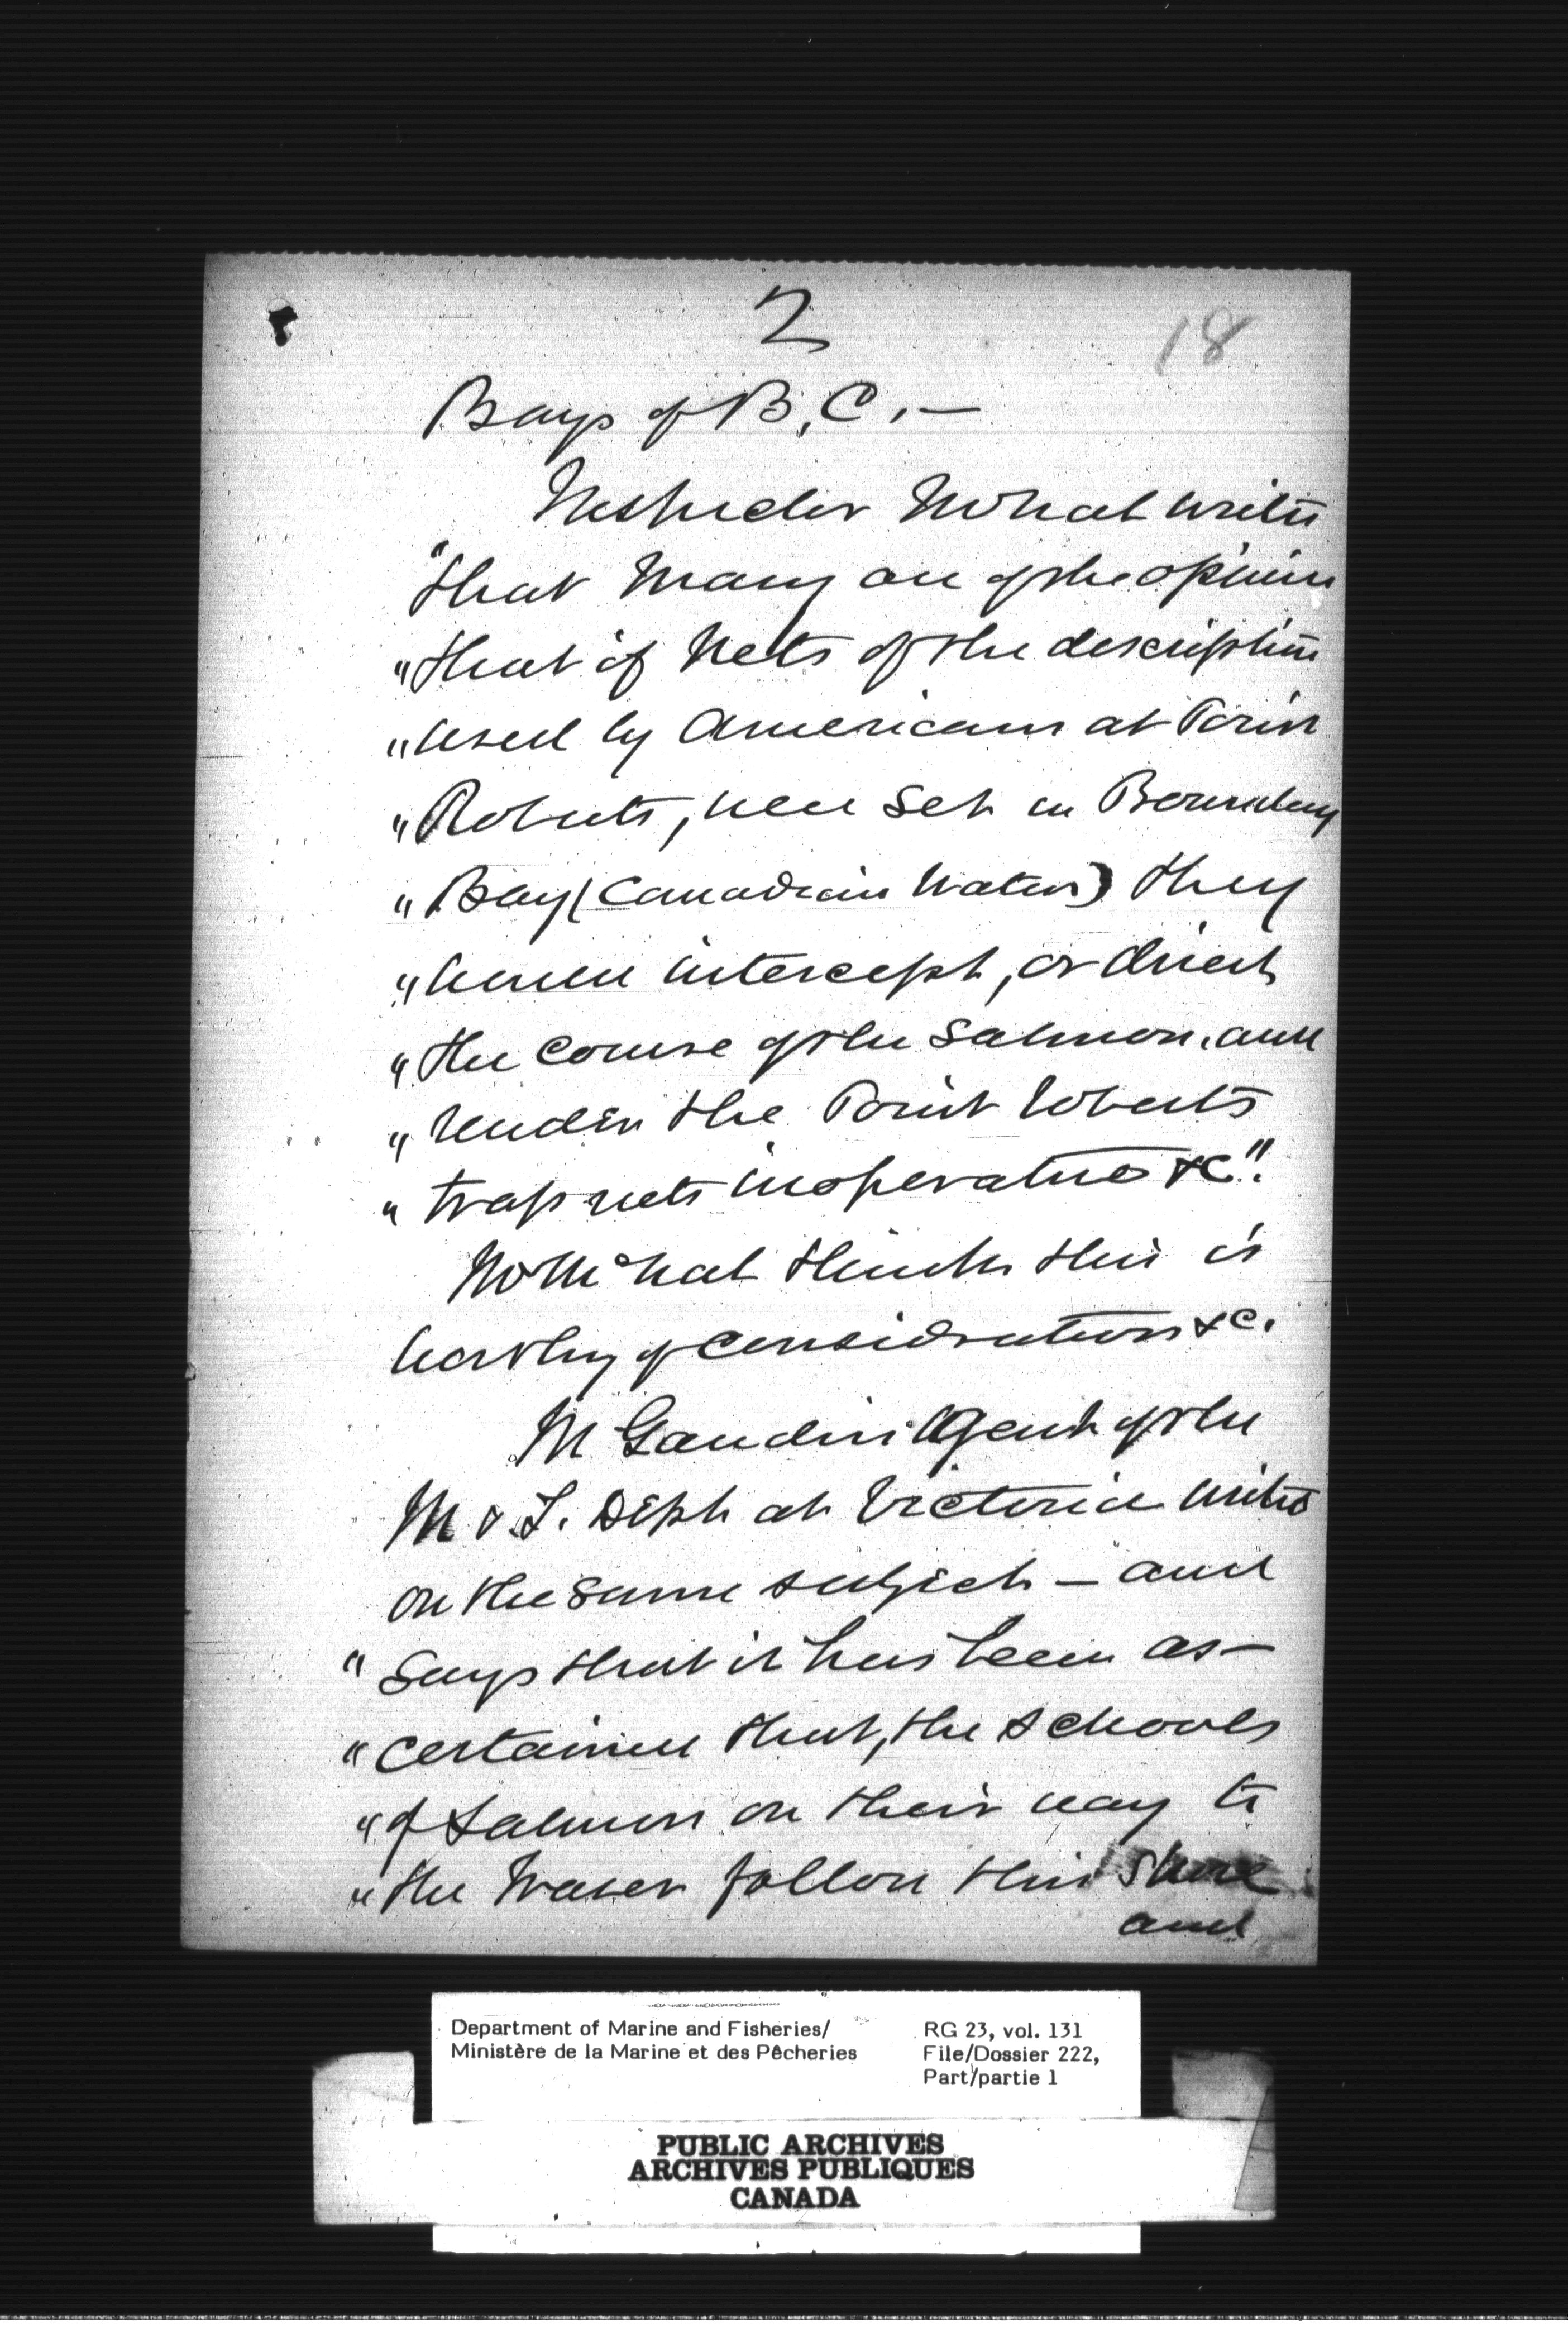 2
18
Bays of B.C. —
Inspector McNab writes
"that many are of the opinion
"that if nets of the description
"used by Americans at Point
"Roberts, were set in Boundary
"Bay (Canadian waters) they
"would intercept, or divert
"the course of the salmon, and
"render the Point Roberts
"trap nets inoperative &c".
Mr McNab thinks this is
worthy of consideration &c.
Mr Gaudin Agent of the
M & F. Dept at Victoria writes
on the same subject — and
"says that it has been as-
"certained that, the schools
"of salmon on their way to
"the Fraser follow this shore
and
Department of Marine and Fisheries/
Ministère de la Marine et des Pêcheries
RG 23, vol. 131
File/Dossier 222,
Part/partie 1
PUBLIC ARCHIVES
ARCHIVES PUBLIQUES
CANADA